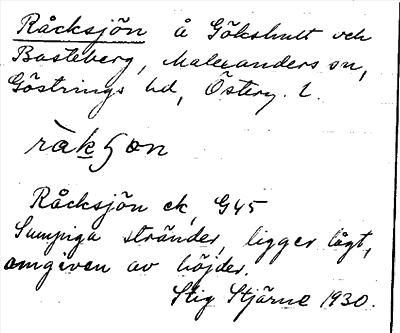 Råcksjön å Gökshult och
Basteberg, Malexanders sn,
Göstrings hd, Österg. l.
råkʃơn
Råcksjön ek, G45
Sumpiga stränder, ligger lågt,
omgiven av höjder.
Stig Stjärne 1930.